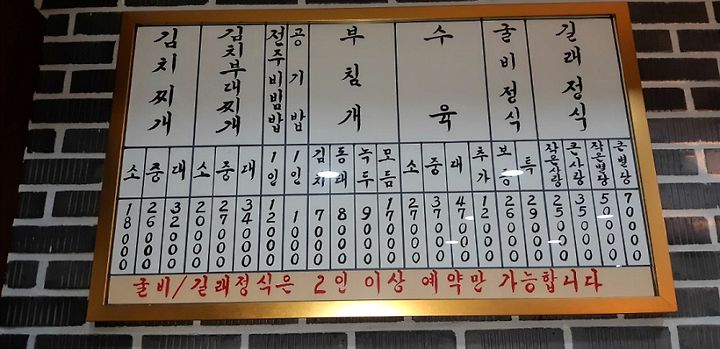 김치찌개 김치부대찌개 전주비빔밥 공기밥 부침개 수육 굴비정식 길래정식
소 중 대 소 중 대 1인 1인 김치 동태 녹두 모듬 소 중 대 추가 보통 특 작은사랑 큰사랑 작은별당 큰별당
18000 26000 32000 20000 27000 34000 12000 1000 7000 8000 9000 17000 27000 37000 47000 12000 26000 29000 25000 35000 50000 70000
굴비/길래정식은 2인 이상 예약만 가능합니다